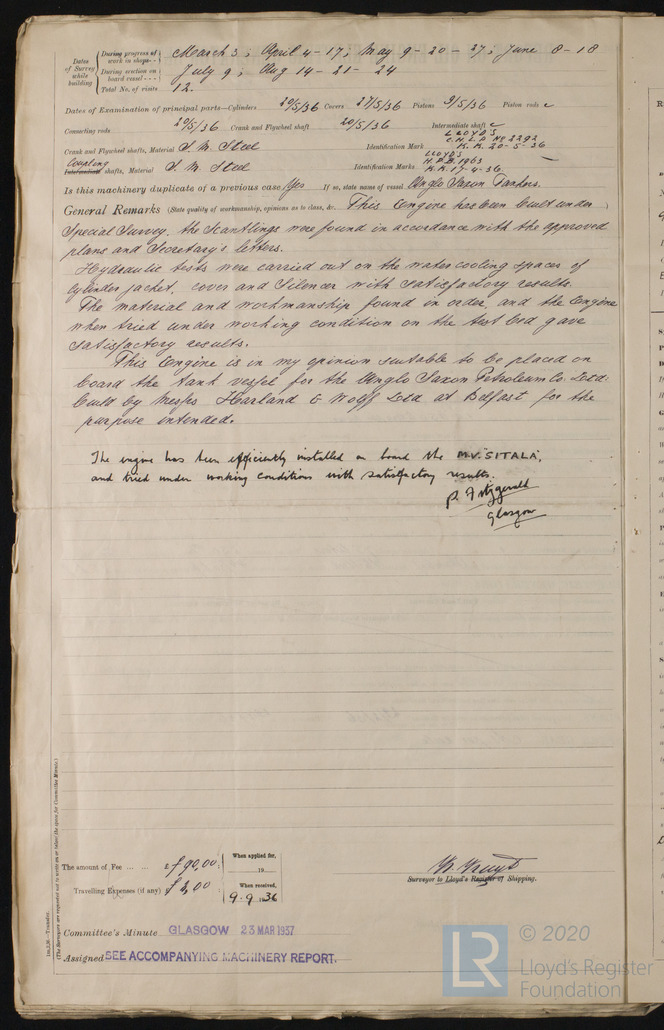 Dates of Survey while building
During progress of work in shops - - March 3; April 4 - 17; May 9 - 20 - 27; June 8 - 18
During erection on board vessel - - - July 9; Aug 14 - 21 - 24
Total No. of visits 12.
Dates of Examination of principal parts—Cylinders 20/5/36 Covers 27/5/36 Pistons 9/5/36 Piston rods
Connecting rods 20/5/36 Crank and Flywheel shaft 20/5/36 Intermediate shaft
Crank and Flywheel shafts, Material S. M. Steel Identification Mark LLOYD'S No 2292 K.K. 20-5-36
Coupling
Intermediate shafts, Material S. M. Steel Identification Marks LLOYD'S 1963 K.K. 17-4-36
Is this machinery duplicate of a previous case Yes If so, state name of vessel Anglo Saxon Tankers.
General Remarks (State quality of workmanship, opinions as to class, &c. This Engine has been built under
Special Survey, the scantlings were found in accordance with the approved
plans and Secretary's letters.
Hydraulic tests were carried out on the watercooling spaces of
cylinder jacket, cover and silencer with satisfactory results.
The material and workmanship found in order, and the Engine
when tried under working condition on the test bed gave
satisfactory results.
This Engine is in my opinion suitable to be placed on
board the tank vessel for the Anglo Saxon Petroleum Co. Ltd.
build by Messrs Harland & Wolff Ltd at Belfast for the
purpose intended.
The engine has been efficiently installed on board the M.V. "SITALA",
and tried under working conditions with satisfactory results.
P. Fitzgerald
Glasgow
The amount of Fee ... ... £ 90.00 When applied for,
19
Travelling Expenses (if any) £ When received,
9.9.1936
Surveyor to Lloyd's Register of Shipping.
Committee's Minute GLASGOW 23 MAR 1937
Assigned SEE ACCOMPANYING MACHINERY REPORT.
(The Surveyors are requested not to write on or below the space for Committee Minute.)
LR © 2020
Lloyd's Register
Foundation